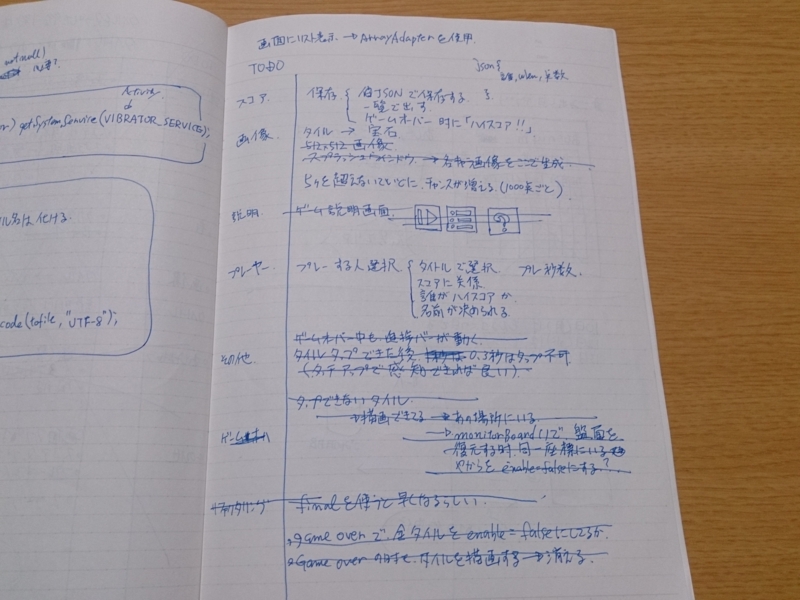 notnull)
Activity
getSystemService(VIBRATOR_SERVICE);
ル名は化ける.
code(tofile, "UTF-8");
画面にリスト表示. → ArrayAdapterを使用.
TODO
json{
誰, when, 点数
}.
スコア. 保存. { 台JSONで保存する.
一覧で出す.
ゲームオーバー時に「ハイスコア!!」
画像. タイル → 宝石
512x512 画像
スプラッシュウィンドウ. → 画像をここで生成.
5ヶを超えないていどに、チャンスが増える.(1000点ごと)
説明. ゲーム説明画面.
プレーヤー. プレーする人選択 { タイトルで選択 プレー秒数.
スコアに関係
誰がハイスコアか.
名前が決められる.
ゲームオーバー中も進捗バーが動く.
その他. タイルタップできた後 0.3秒はタップ不可
(タッチアップで感知できれば良い).
タップできないタイル.
→描画できてる → あの場所にいる.
ゲーム → monitorBoard()で、盤面を
復元する時、同一座標にいる
やからを enable=falseにする?
finalを使うと早くなるらしい.
game overで、全タイルを enable=falseにしてるか.
Game over タイルを描画する → 消える.